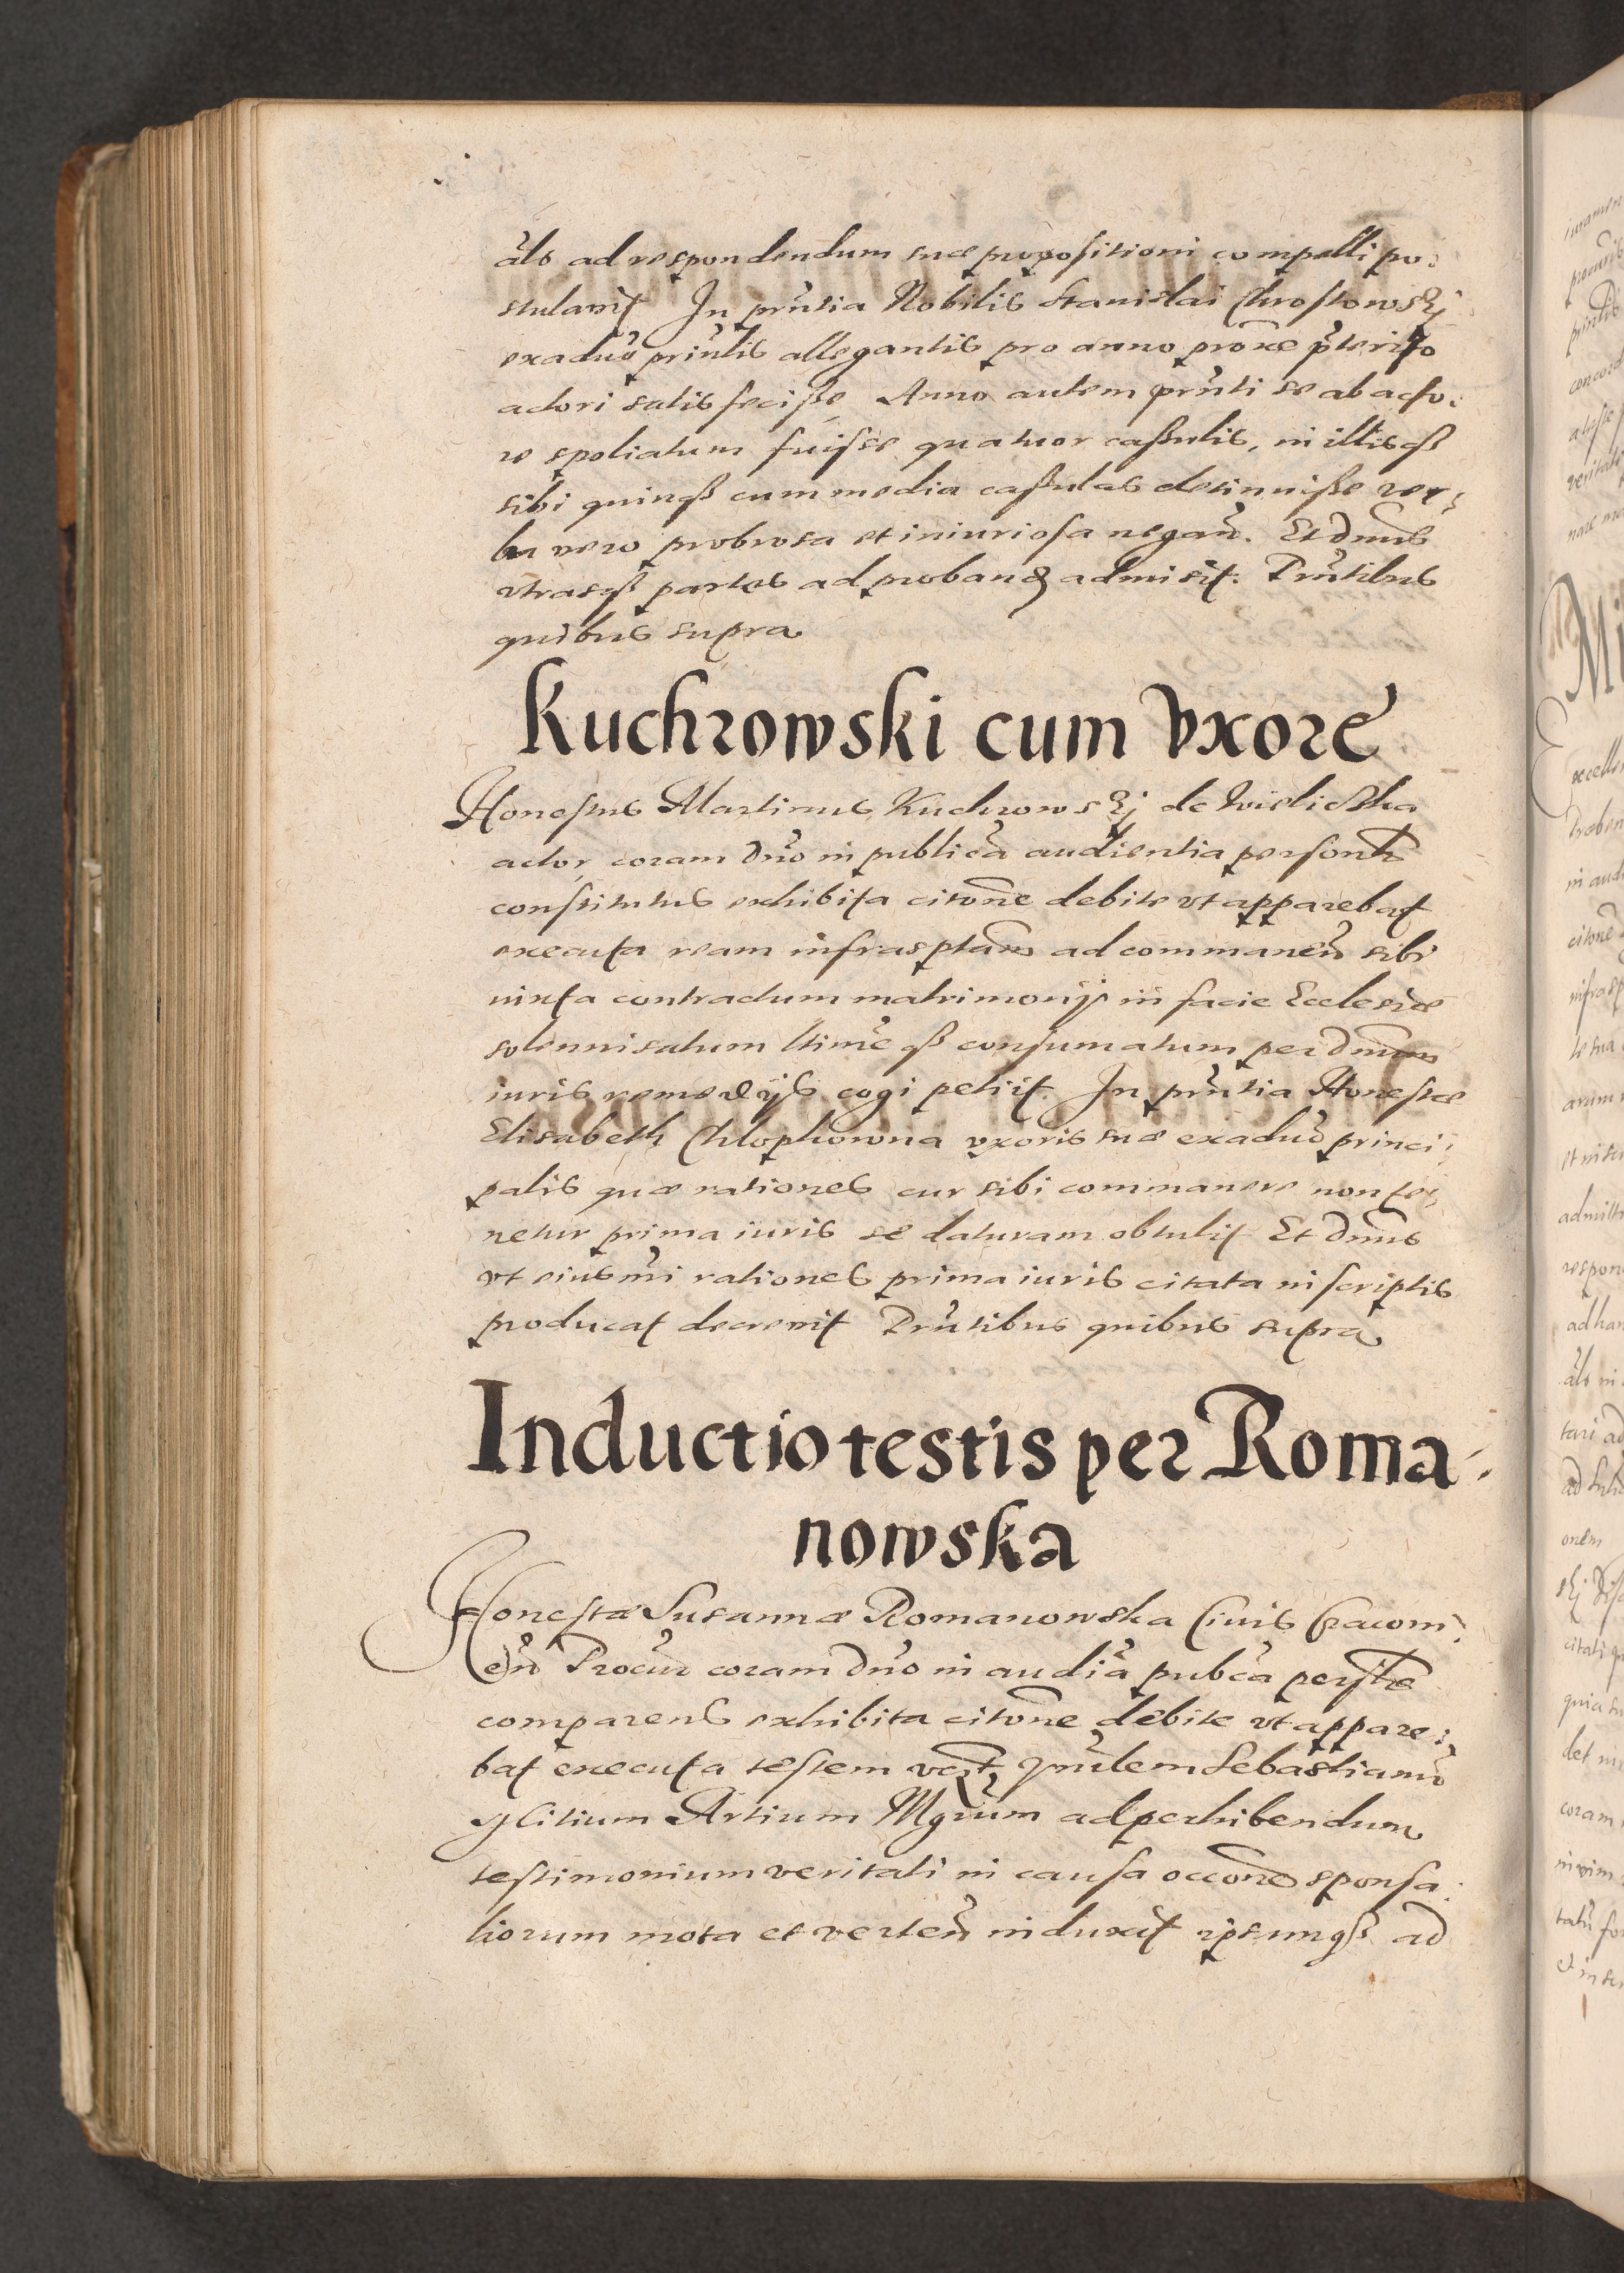 als ad respondendum suæ propositioni compelli po:
stulavit In pntia Nobilis Stanislai Chrostowskj
exaduo prinlis allegantis pro anno proxe pterito
actori satisfecisse Anno autem pnti se ab acto:
re spoliatum fuisse quatuor cassulis, in illisqß
sibi quinqß cum media cassulas detinuisse ver:
ba vero probrosa et iniuriosa negan. Et dnus
vtrasqß partes ad proband admisit. Pntibus
quibus supra
Kuchrowski cum Vxore
Honestus Martinus Kuchrowskj de Wislicska
actor coram dno in publica audientia personlr
constitutus exhibita citone debite vt apparebat
executa ream infrasptam ad commanen sibi
iuxta contractum matrimonij in facie Ecclesiæ
solennisatum ltime qß consumatum per dnum
iuris remedijs cogi petiit. In pntia Honestæ
Elisabeth Chlophowna vxoris suæ exaduo princi:
palis quæ rationes cur sibi commanere non te:
netur prima iuris se daturam obtulit Et dnus
vt eiusmi rationes prima iuris citata in scriptis
producat decrevit Pntibus quibus supra
Inductio testis per Roma-
nowska
Honestæ Susannæ Romanowska Civis Cracovi:
en Procur coram dno in audia pubca perslr
comparens exhibita citone debite vt appare:
bat executa testem Sebastianu
Artium Mgrum ad perhibendum
testimonium veritati in causa occone sponsa:
liorum mota et verten induxit ipsumqß ad